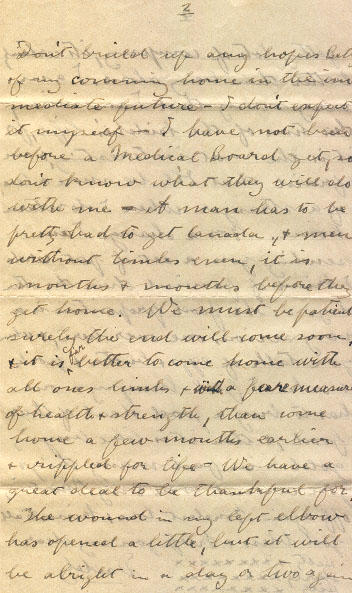 2
Don't build up any hopes Bell
of my coming home in the im
mediate future - I don't expect
it myself - I have not been
before a Medical Board yet, so
don't know what they will do
with me - A man has to be
pretty bad to get Canada, & men
without limbs even, it is
months & months before they
get home. We must be patient
surely the end will come soon,
& it is far better to come home with
all ones limbs & with a measure
of health & strength, than come
home a few months earlier
& crippled for life - We have a
great deal to be thankful for.
The wound in my left elbow
has opened a little, but it will
be alright in a day or two again